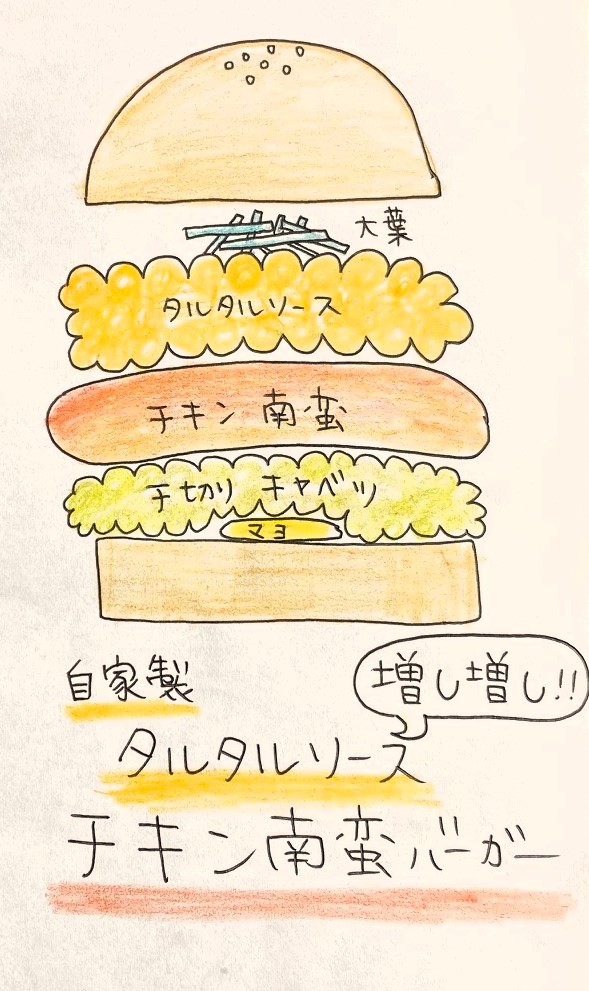 大葉
タルタルソース
チキン南蛮
千切り キャベツ
マヨ
自家製
増し増し!!
タルタルソース
チキン南蛮バーガー